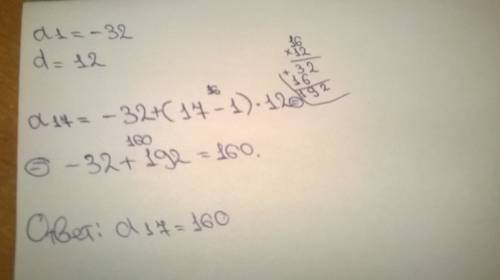 a1 = -32
d = 12
16
×12
+32
16
192
16
a17 = -32+(17-1)·12=
160
= -32+192=160.
Ответ: a17=160